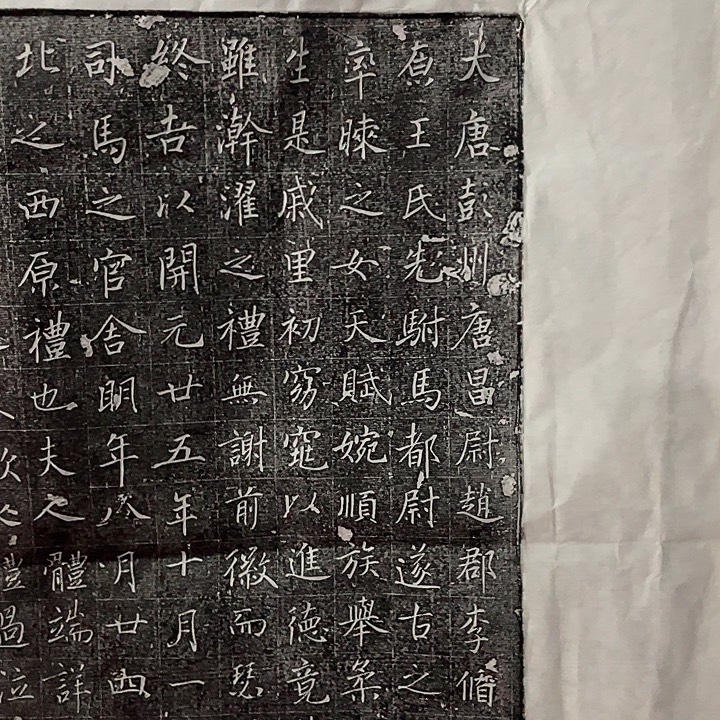 大唐彭州唐昌尉趙郡李脩
㥁王氏先駙馬都尉遂古之
率暕之女天賦婉順族舉柔
生是戚里初窈窕以進德竟
雖澣濯之禮無謝前徽而琴
終吉以開元廿五年十月一
司馬之官舍明年八月廿四
北之西原禮也夫人體端詳